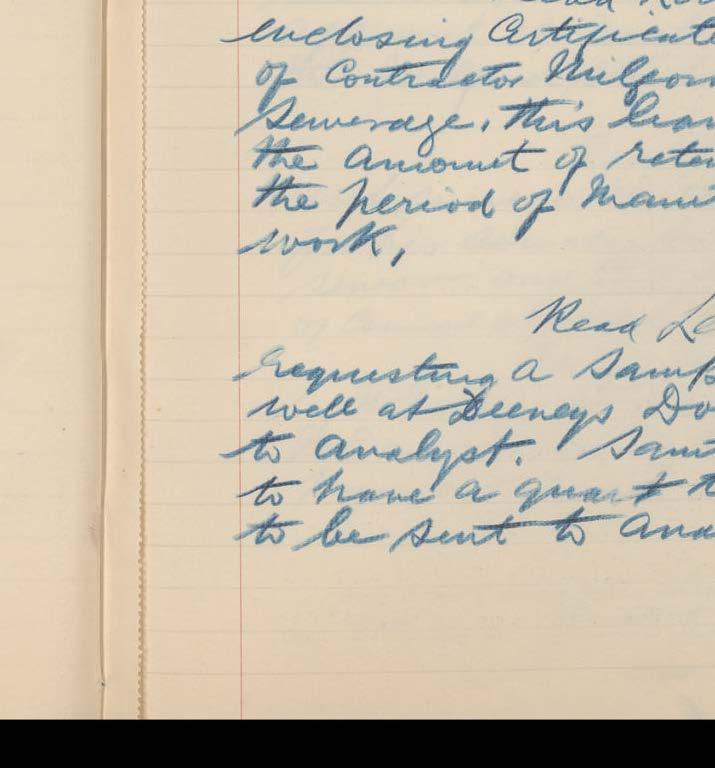 Read
enclosing Certificate
of Contractor Milfor
Sewerage, this
the amount of reten
the period of
work,
Read Le
requesting a Samp
well at Deeneys Do
to analyst. Sani
to have a quart
to be sent to ana